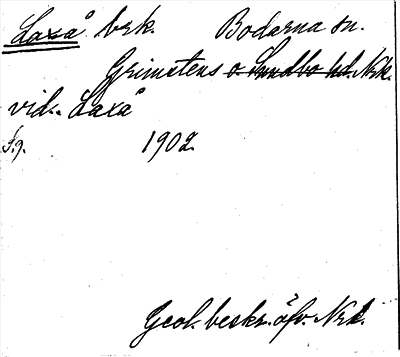 Laxå brk. Bodarna sn.
Grimstens o. Sundbo hd. Nrk.
vid. Laxå
S.9. 1902.
Geol. beskr. öfv. Nrk.